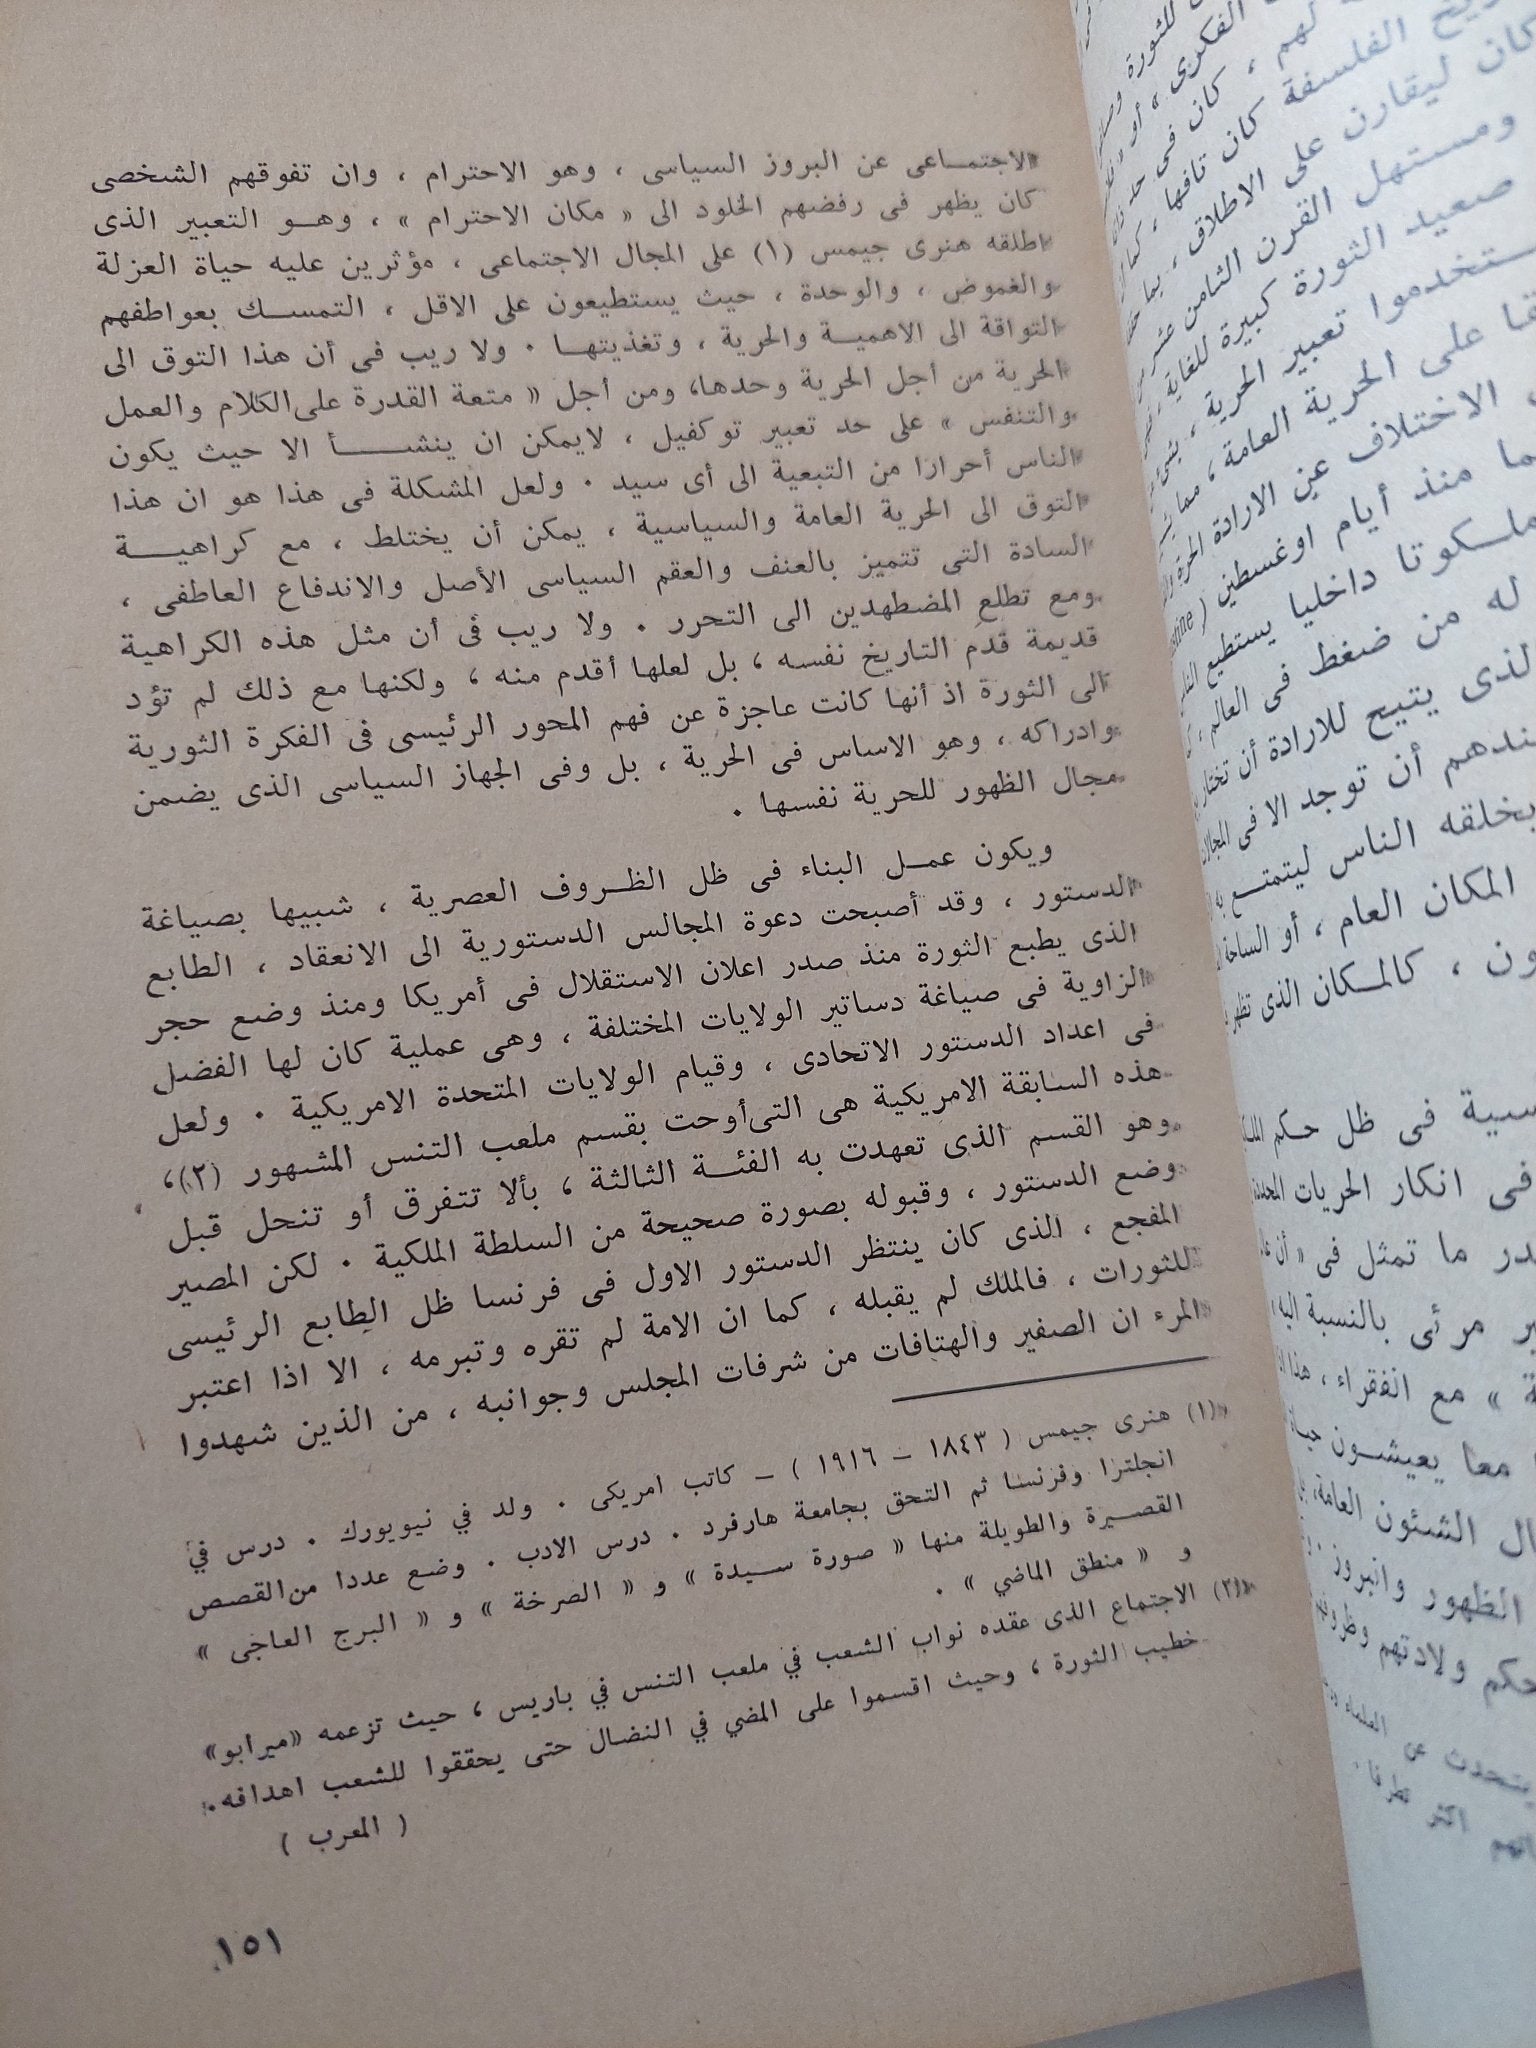 الاجتماعى عن البروز السياسى ، وهو الاحترام ، وان تفوقهم الشخصى
كان يظهر فى رفضهم الخلود الى « مكان الاحترام » ، وهو التعبير الذى
اطلقه هنرى جيمس (١) على المجال الاجتماعى ، مؤثرين عليه حياة العزلة
والغموض ، والوحدة ، حيث يستطيعون على الاقل ، التمسك بعواطفهم
التواقة الى الاهمية والحرية ، وتغذيتها . ولا ريب فى أن هذا التوق الى
الحرية من أجل الحرية وحدها، ومن أجل « متعة القدرة على الكلام والعمل
والتنفس » على حد تعبير توكفيل ، لايمكن ان ينشأ الا حيث يكون
الناس أحرارا من التبعية الى أى سيد . ولعل المشكلة فى هذا هو ان هذا
التوق الى الحرية العامة والسياسية ، يمكن أن يختلط ، مع كراهية
السادة التى تتميز بالعنف والعقم السياسى الأصل والاندفاع العاطفى ،
ومع تطلع المضطهدين الى التحرر . ولا ريب فى أن مثل هذه الكراهية
قديمة قدم التاريخ نفسه ، بل لعلها أقدم منه ، ولكنها مع ذلك لم تؤد
الى الثورة اذ أنها كانت عاجزة عن فهم المحور الرئيسى فى الفكرة الثورية
وادراكه ، وهو الاساس فى الحرية ، بل وفى الجهاز السياسى الذى يضمن
مجال الظهور للحرية نفسها .
ويكون عمل البناء فى ظل الظروف العصرية ، شبيها بصياغة
الدستور ، وقد أصبحت دعوة المجالس الدستورية الى الانعقاد ، الطابع
الذى يطبع الثورة منذ صدر اعلان الاستقلال فى أمريكا ومنذ وضع حجر
الزاوية فى صياغة دساتير الولايات المختلفة ، وهى عملية كان لها الفضل
فى اعداد الدستور الاتحادى ، وقيام الولايات المتحدة الامريكية . ولعل
هذه السابقة الامريكية هى التى أوحت بقسم ملعب التنس المشهور (٢)،
وهو القسم الذى تعهدت به الفئة الثالثة ، بألا تتفرق أو تنحل قبل
وضع الدستور ، وقبوله بصورة صحيحة من السلطة الملكية . لكن المصير
المفجع ، الذى كان ينتظر الدستور الاول فى فرنسا ظل الطابع الرئيسى
للثورات ، فالملك لم يقبله ، كما ان الامة لم تقره وتبرمه ، الا اذا اعتبر
المرء ان الصفير والهتافات من شرفات المجلس وجوانبه ، من الذين شهدوا
(١) هنرى جيمس ( ١٨٤٣ – ١٩١٦ ) – كاتب امريكى . ولد في نيويورك . درس في
انجلترا وفرنسا ثم التحق بجامعة هارفرد . درس الادب . وضع عددا من القصص
القصيرة والطويلة منها « صورة سيدة » و « الصرخة » و « البرج العاجى »
و « منطق الماضي » .
(٢) الاجتماع الذى عقده نواب الشعب في ملعب التنس في باريس ، حيث تزعمه «ميرابو»
خطيب الثورة ، وحيث اقسموا على المضي في النضال حتى يحققوا للشعب اهدافه.
( المعرب )
١٥١
كان ليقارن على الاطلاق ، بما
ومستهل القرن الثامن عشر
صعيد الثورة كبيرة للغاية
ستخدموا تعبير الحرية ،
على الحرية العامة ، مما
الاختلاف عن الارادة الحرة
منذ أيام اوغسطين
ملكوتا داخليا يستطيع
له من ضغط فى العالم ،
الذى يتيح للارادة أن تختار
عندهم أن توجد الا فى المجالات
بخلقه الناس ليتمتع به
المكان العام ، أو الساحة
ون ، كالمكان الذى تظهر
سية فى ظل حكم
فى انكار الحريات المحددة
در ما تمثل فى « أن
ير مرئى بالنسبة اليه
ة » مع الفقراء ، هذا
معا يعيشون حياة
ال الشئون العامة،
الظهور والبروز .
حكم ولادتهم وظروفهم
يتحدث عن العلماء